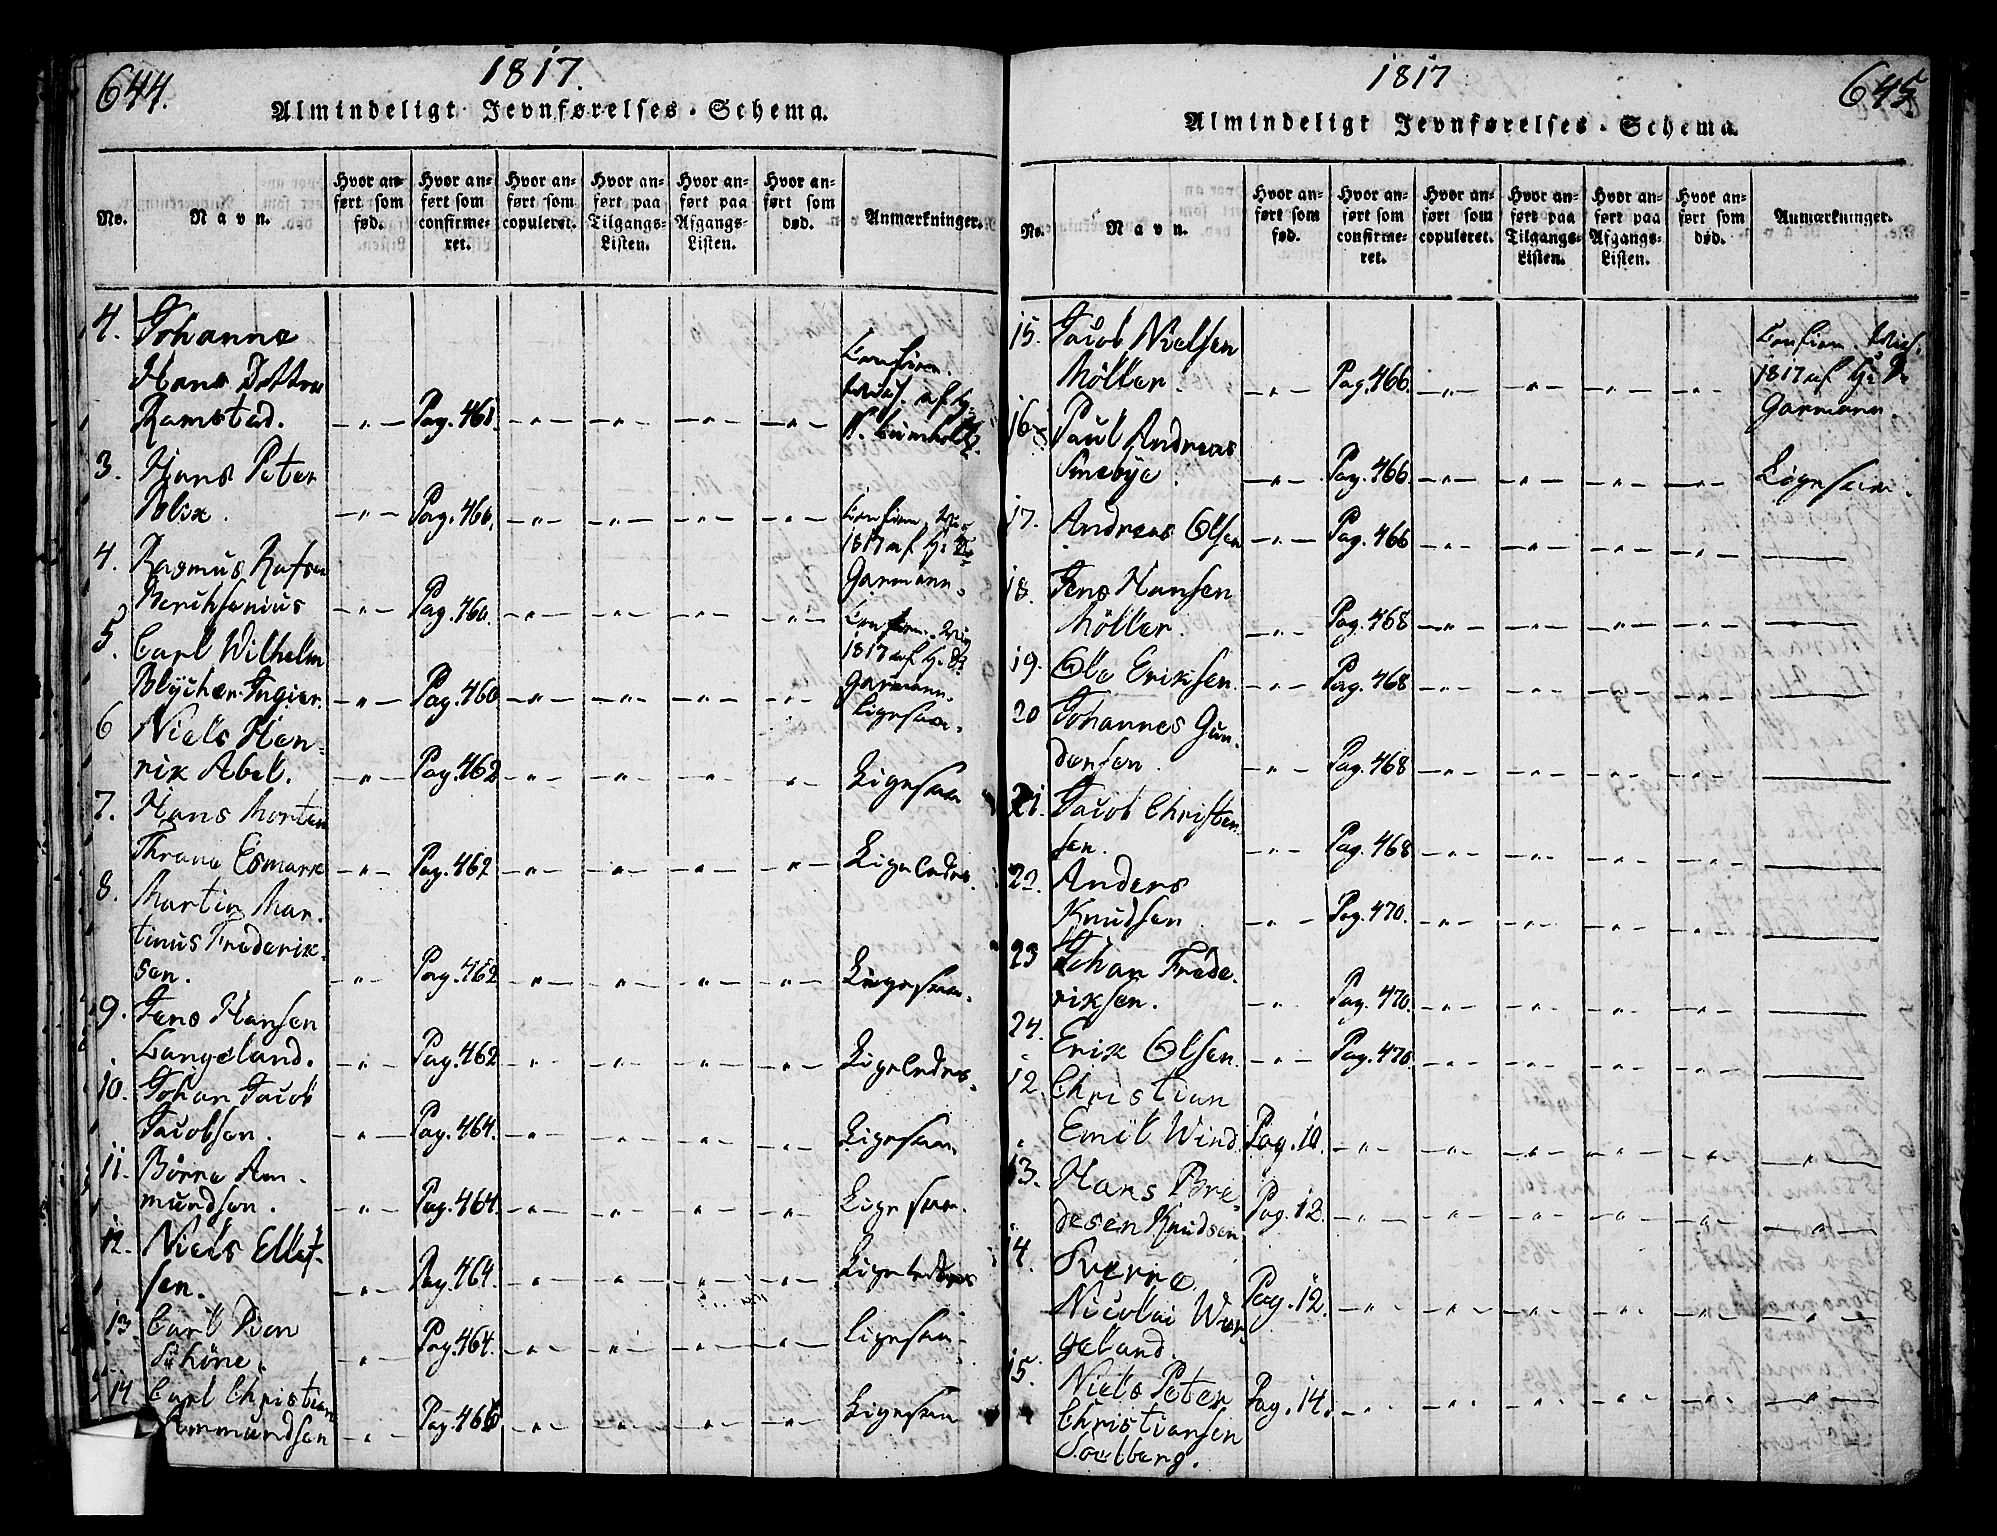 644.
1817.
Almindeligt Jevnførelses-Schema.
No.
Navn.
Hvor anført som fød.
Hvor anført som confirmeret.
Hvor anført som copuleret.
Hvor anført paa Tilgangs-Listen.
Hvor anført paa Afgangs-Listen.
Hvor anført som død.
Anmærkninger.
4. Johanne
Hans Dottra
Ramstad. Pag. 461.
3. Hans Peter
Blix. Pag. 460.
4. Rasmus
Pag. 460.
1817 af
Garmann.
5. Carl Wilhelm
Blÿcher Ingier. Pag. 460
1817 af
Garmann.
Ligesaa.
6 Niels Hen-
rik Abel. Pag. 462 Ligesaa
7. Hans Morten
Thrane Esmark Pag. 462 Ligeledes.
8. Martin Mar-
tinus Frederik-
sen. Pag. 462 Ligesaa.
9. Jens Hansen
Langeland. Pag. 462 Ligeledes.
10. Johan Jacob
Jacobsen. Pag. 464. Ligesaa.
11. Börre Am-
mundsen. Pag. 464. Ligesaa.
12. Niels Ellef-
sen. Pag. 464. Ligeledes
13. Carl
Schöne. Pag. 464. Ligesaa.
14 Carl Christian
Ammundsen Pag. 466 Ligesaa
1817
645
Almindeligt Jevnførelses-Schema.
No.
Navn.
Hvor anført som fød.
Hvor anført som confirmeret.
Hvor anført som copuleret.
Hvor anført paa Tilgangs-Listen.
Hvor anført paa Afgangs-Listen.
Hvor anført som død.
Anmærkninger.
15. Jacob Nielsen
Möller. Pag. 466.
1817 af
Garmann.
16. Paul Andreas
Smebÿe. Pag. 466 Ligesaa.
17. Andreas Olsen Pag. 466
18. Jens Hansen
Möller. Pag. 468
19. Ole Eriksen. Pag. 468
20 Johannes Gun-
dersen. Pag. 468
21. Jacob Christen-
sen. Pag. 468
22. Anders
Knudsen Pag. 470.
23 Johan Frede-
riksen. Pag. 470.
24. Erik Olsen. Pag. 470.
12. Christian
Emil Wind. Pag. 10.
13. Hans Bre-
desen Knudsen Pag. 12.
14. Sverre
Nicolai Wer-
geland. Pag. 12.
15. Niels Peter
Christiansen
Soelberg. Pag. 14.